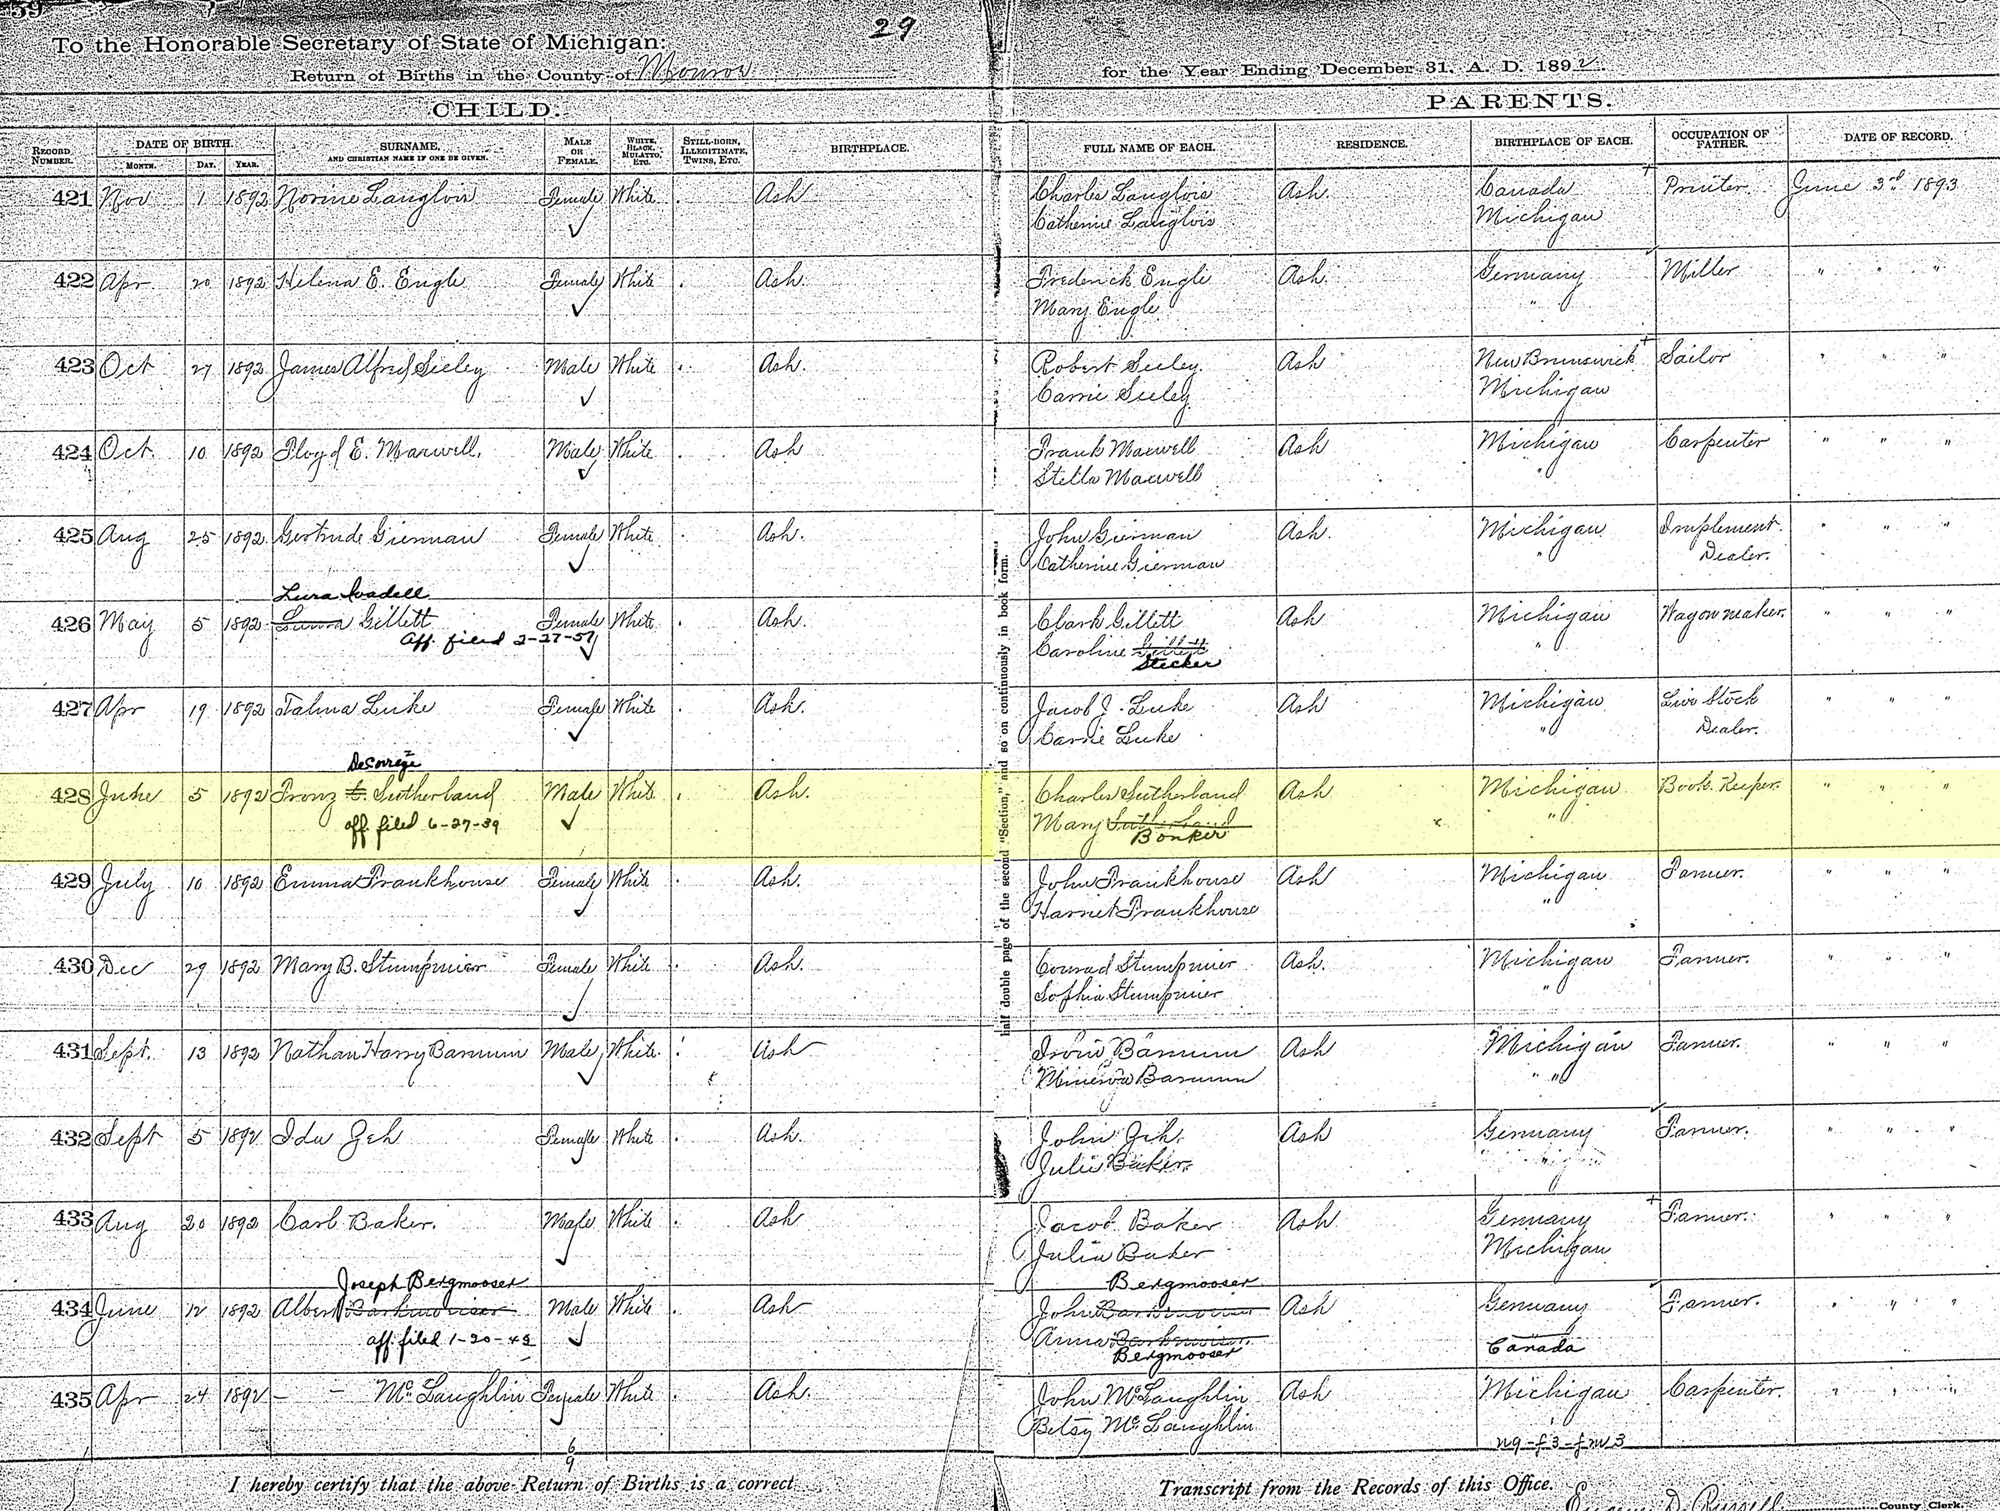 39
29
To the Honorable Secretary of State of Michigan:
Return of Births in the County of Monroe for the Year Ending December 31, A. D. 1892.
CHILD. PARENTS.
RECORD NUMBER. DATE OF BIRTH. MONTH. DAY. YEAR. SURNAME, AND CHRISTIAN NAME IF ONE BE GIVEN. MALE OR FEMALE. WHITE, BLACK, MULATTO, ETC. STILL-BORN, ILLEGITIMATE, TWINS, ETC. BIRTHPLACE. FULL NAME OF EACH. RESIDENCE. BIRTHPLACE OF EACH. OCCUPATION OF FATHER. DATE OF RECORD.
421 Nov 1 1892 Norine Langlois Female White Ash Charles Langlois Ash. Canada Printer June 3rd 1893
Catherine Langlois Michigan
422 Apr 20 1892 Helena E. Engle Female White Ash. Frederick Engle Ash. Germany Miller " " "
Mary Engle "
423 Oct 27 1892 James Alfred Seeley Male White Ash. Robert Seeley Ash New Brunswick Sailor " " "
Carrie Seeley Michigan
424 Oct. 10 1892 Floyd E. Maxwell. Male White Ash Frank Maxwell Ash Michigan Carpenter " " "
Stella Maxwell "
425 Aug 25 1892 Gertrude Gierman Female White Ash. John Gierman Ash. Michigan Implement " " "
Catherine Gierman " Dealer.
Lura
426 May 5 1892 Gillett Female White Ash. Clark Gillett Ash Michigan Wagon maker. " " "
aff. filed 2-27-57 Caroline Gillett "
Stecker
427 Apr 19 1892 Talma Luke Female White Ash. Jacob J. Luke Ash Michigan Live Stock " " "
Carrie Luke " Dealer.
428 June 5 1892 Sutherland Male White Ash. Charles Sutherland Ash Michigan Book Keeper. " " "
aff. filed 6-27-39 Mary Sutherland "
Bonker
429 July 10 1892 Emma Frankhouse Female White Ash. John Frankhouse Ash Michigan Farmer. " " "
Harriet Frankhouse "
430 Dec 29 1892 Mary B. Stumpmier Female White Ash. Conrad Stumpmier Ash. Michigan Farmer. " " "
Sophia Stumpmier "
431 Sept. 13 1892 Nathan Harry Barnum Male White. Ash Irvin Barnum Ash Michigan Farmer. " " "
Minerva Barnum "
432 Sept 5 1892 Ida Zeh Female White Ash. John Zeh. Ash Germany Farmer. " " "
Julia Baker. "
433 Aug 20 1892 Carl Baker. Male White Ash Jacob Baker Ash Germany Farmer. " " "
Julia Baker Michigan
Joseph Bergmooser Bergmooser
434 June 12 1892 Albert Male White Ash John Ash Germany Farmer. " " "
aff. filed 1-20-43 Anna Canada
Bergmooser
435 Apr 24 1892 - - McLaughlin Female White Ash. John McLaughlin Ash Michigan Carpenter. " " "
Betsy McLaughlin "
6
9
n9-f3-fm3
half double page of the second "Section," and so on continuously in book form.
I hereby certify that the above Return of Births is a correct Transcript from the Records of this Office.
County Clerk.